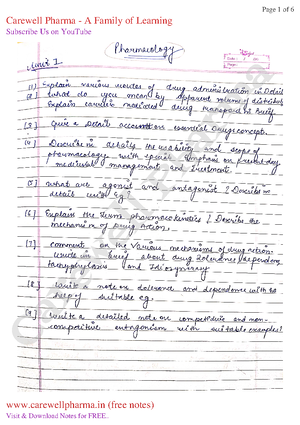 Carewell Pharma - A Family of Learning
Page 1 of 6
Subscribe Us on YouTube
Pharmacology
Unit 1
[1] Explain various routes of drug administration in Detail
[2] What do you mean by Apparent volume of distribution
Explain carrier mediated drug transport in brief
[3] Give a detail account on essential drugs concept.
[4] Describe in details the usability and scope of
pharmacology with special emphasis on present day
medicinal management and treatment.
[5] What are agonist and antagonist ? Describe in
detail with eg.
[6] Explain the term pharmacokinetics ? Describe the
mechanism of drug action.
[7] comment on the various mechanisms of drug action-
write in brief about drug tolerance, dependence,
tachyphylaxis and Idiosyncrasy
[8] Write a note on tolerance and dependence with the
help of suitable eg.
[9] Write a detailed note on competitive and non-
competitive antagonism with suitable examples!
Carewell Pharma
www.carewellpharma.in (free notes)
Visit & Download Notes for FREE..